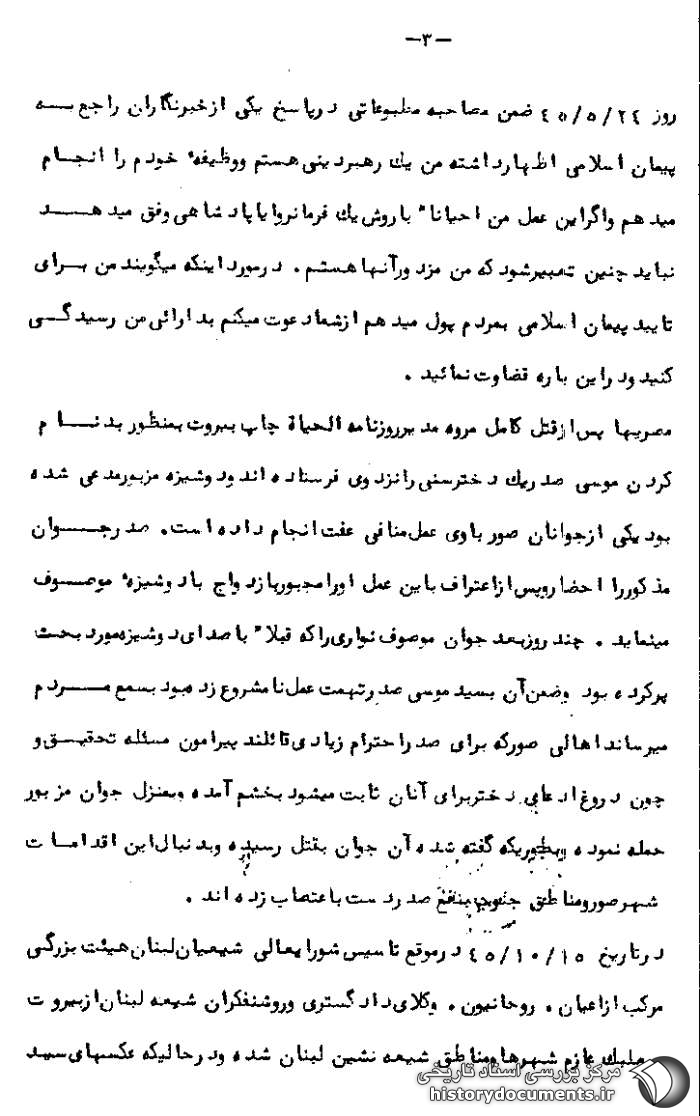 -۳-
روز ۴۵/۵/۲۴ ضمن مصاحبه مطبوعاتی در پاسخ یکی از خبرنگاران راجع به
پیمان اسلامی اظهار داشته من یک رهبر دینی هستم و وظیفهٔ خودم را انجام
میدهم و اگر این عمل من احیاناً با روش یک فرمانروا یا پادشاهی وفق میدهد
نباید چنین تعبیر شود که من مزدور آنها هستم . در مورد اینکه میگویند من برای
تایید پیمان اسلامی بمردم پول میدهم از شما دعوت میکنم بدارائی من رسیدگی
کنید و در این باره قضاوت نمائید .
مصریها پس از قتل کامل مروه مدیر روزنامه الحیاة چاپ بیروت بمنظور بدنام
کردن موسی صدر یک دختر سنی را نزد وی فرستاده اند و دوشیزه مزبور مدعی شده
بود یکی از جوانان صور با وی عمل منافی عفت انجام داده است. صدر جوان
مذکور را احضار و پس از اعتراف باین عمل او را مجبور بازدواج با دوشیزهٔ موصوف
مینماید . چند روز بعد جوان موصوف نواری را که قبلاً با صدای دوشیزه مورد بحث
پر کرده بود و ضمن آن بسید موسی صدر تهمت عمل نامشروع زده بود بسمع مردم
میرساند اهالی صور که برای صدر احترام زیادی قائلند پیرامون مسئله تحقیق و
چون دروغ ادعای دختر برای آنان ثابت میشود بخشم آمده و بمنزل جوان مزبور
حمله نموده و بطوریکه گفته شده آن جوان بقتل رسیده و بدنبال این اقدامات
شهر صور و مناطق جنوبی بنفع صدر دست باعتصاب زده اند .
در تاریخ ۴۵/۱۰/۱۵ در موقع تاسیس شورایعالی شیعیان لبنان هیئت بزرگی
مرکب از اعیان . روحانیون . وکلای دادگستری و روشنفکران شیعه لبنان از بیروت
عازم شهرها و مناطق شیعه نشین لبنان شده و در حالیکه عکسهای سید
مرکز بررسی اسناد تاریخی
historydocuments.ir